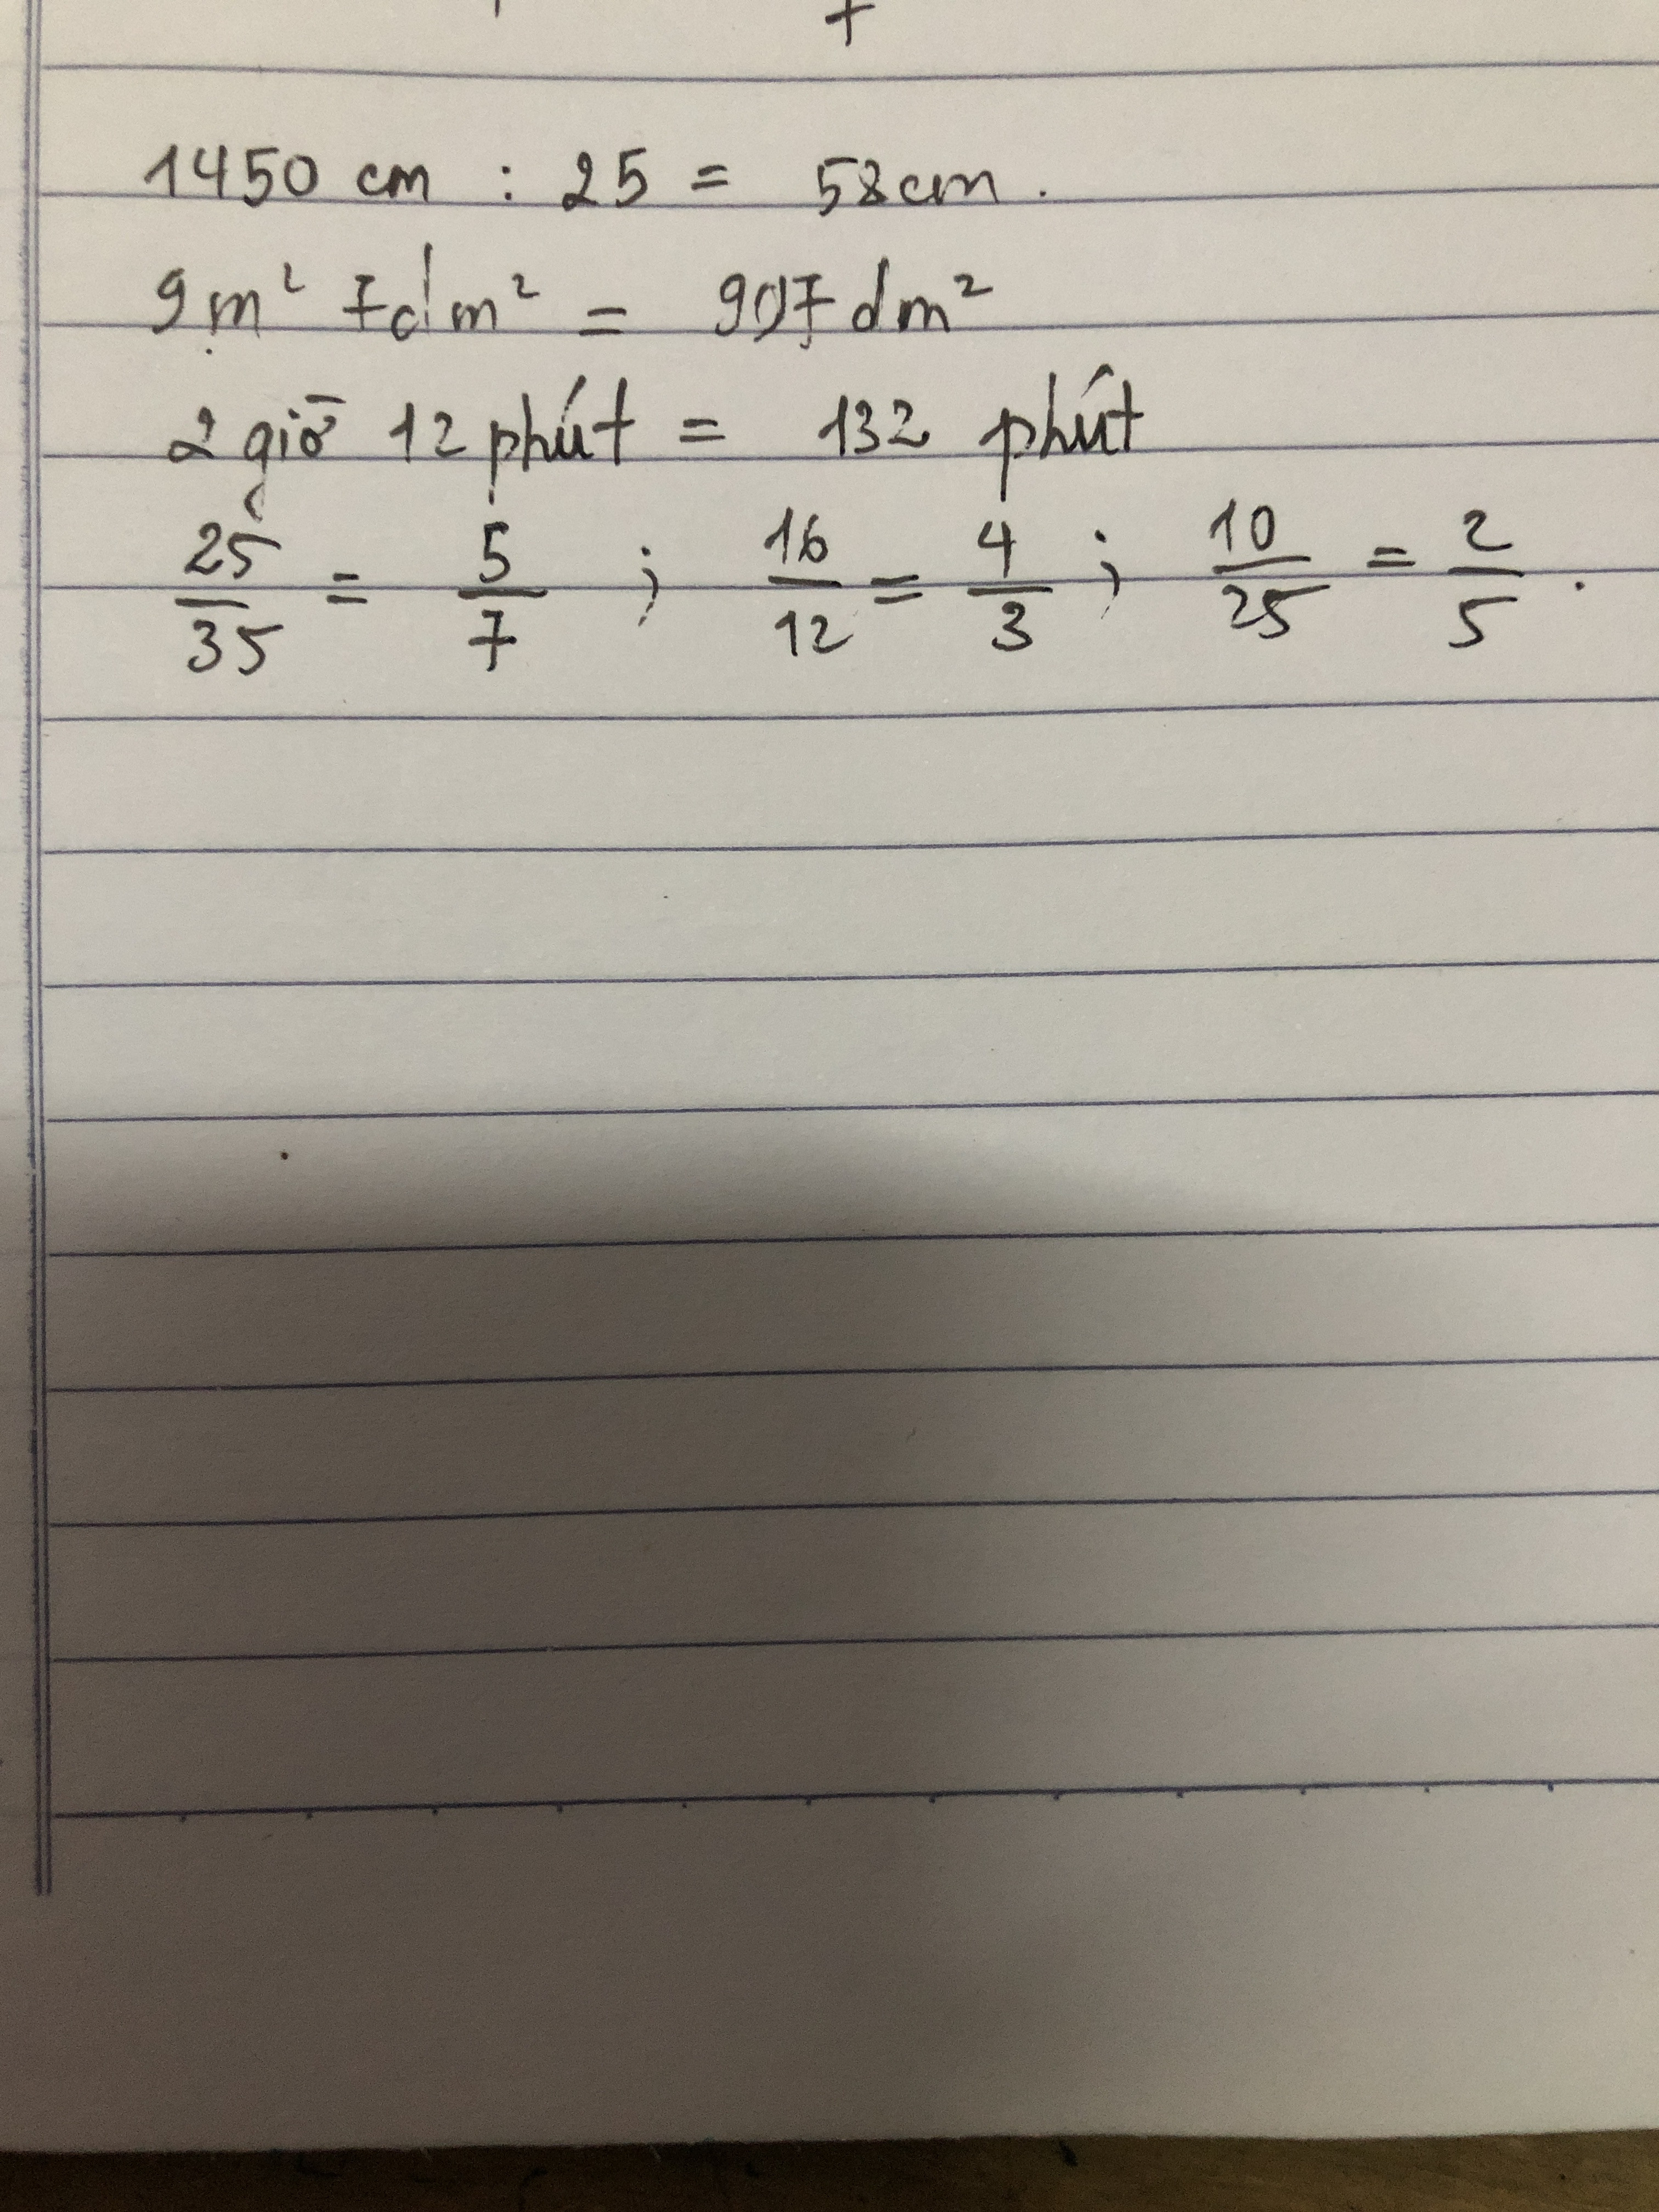 1450 cm : 25 = 58cm.
9m² 7dm² = 907dm²
2 giờ 12 phút = 132 phút
25/35 = 5/7 ; 16/12 = 4/3 ; 10/25 = 2/5.